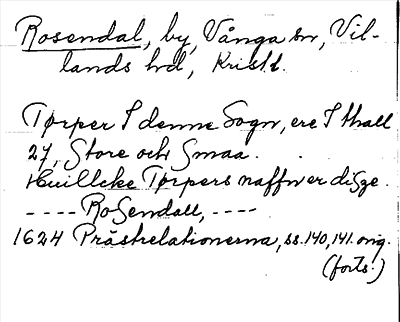 Rosendal, by, Vånga sn, Vil-
lands hd, Krist.l.
Tørper I denne Sogn, ere I thall
27, Store och Smaa.
Huillcke Tørpers naffn er disze.
---- RoSendall, ----
1624 Prästrelationerna, ss. 140, 141. orig.
(forts.)